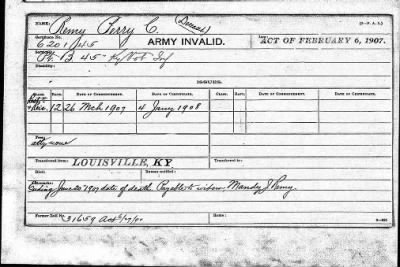 NAME: Remy Perry C. (Deceased) (3-P. A. I.)
Certificate No. 620,145 ARMY INVALID. Law: ACT OF FEBRUARY 6, 1907.
Service: Pt. B 45 Ky Vol Inf
Disability:
ISSUES.
CLASS. RATE. DATE OF COMMENCEMENT. DATE OF CERTIFICATE. CLASS. RATE. DATE OF COMMENCEMENT. DATE OF CERTIFICATE.
12 26 Mch 1907 4 Jany 1908
Fees: atty none
Transferred from: LOUISVILLE, KY Transferred to:
Died: Bureau notified:
Remarks: Ending June 20 1907 date of death Payable to widow, Mandy J Remy.
Former Roll No. 31659 Home: